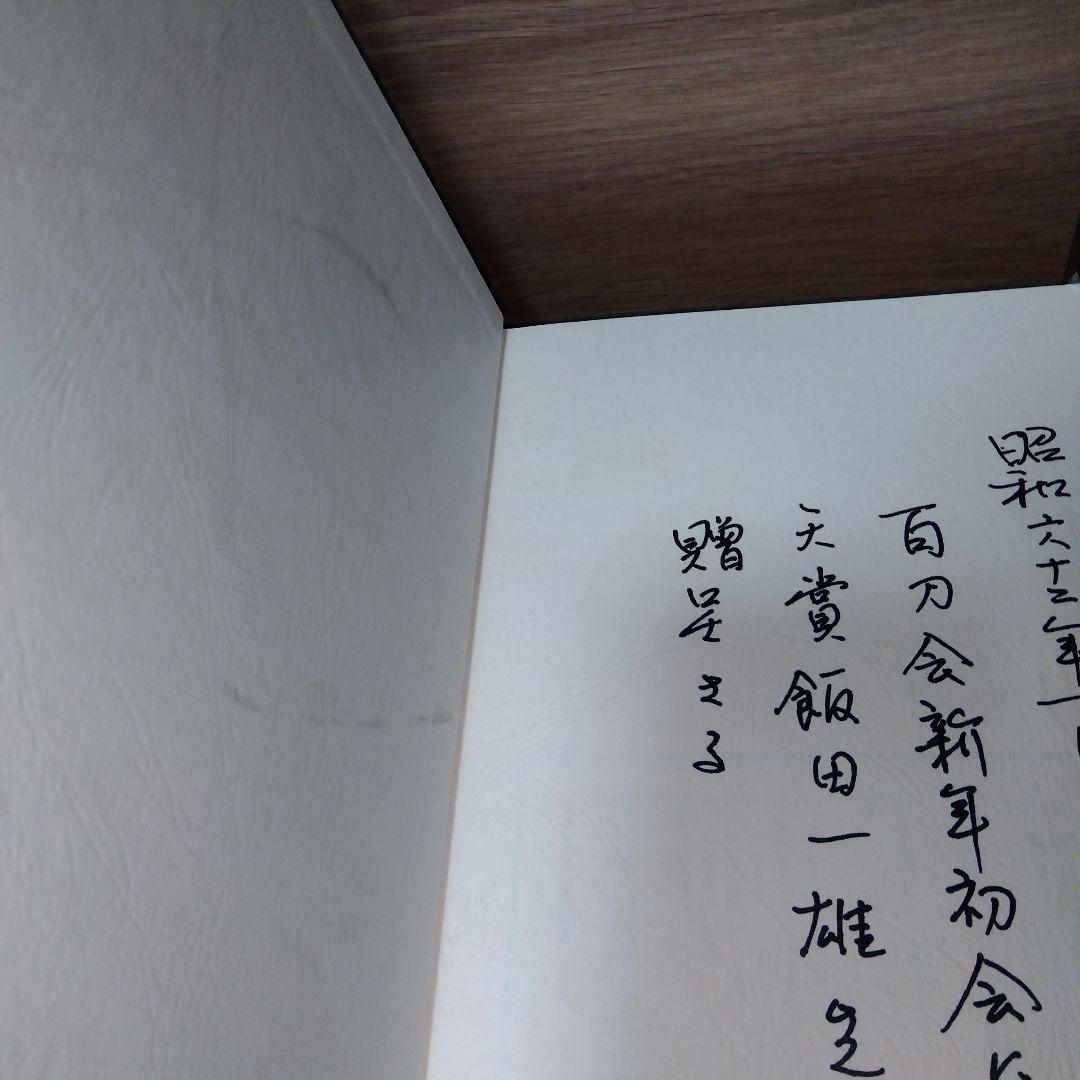 昭和六十三年一
百刀会新年初会に
天賞飯田一雄
贈呈さる